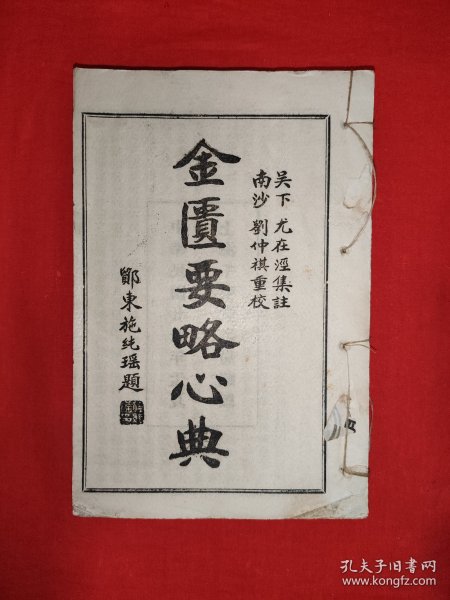 吴下 尤在涇集註
南沙 劉仲祺重校
金匱要略心典
鄞東施純瑶題
孔夫子旧书网
www.kongfz.com